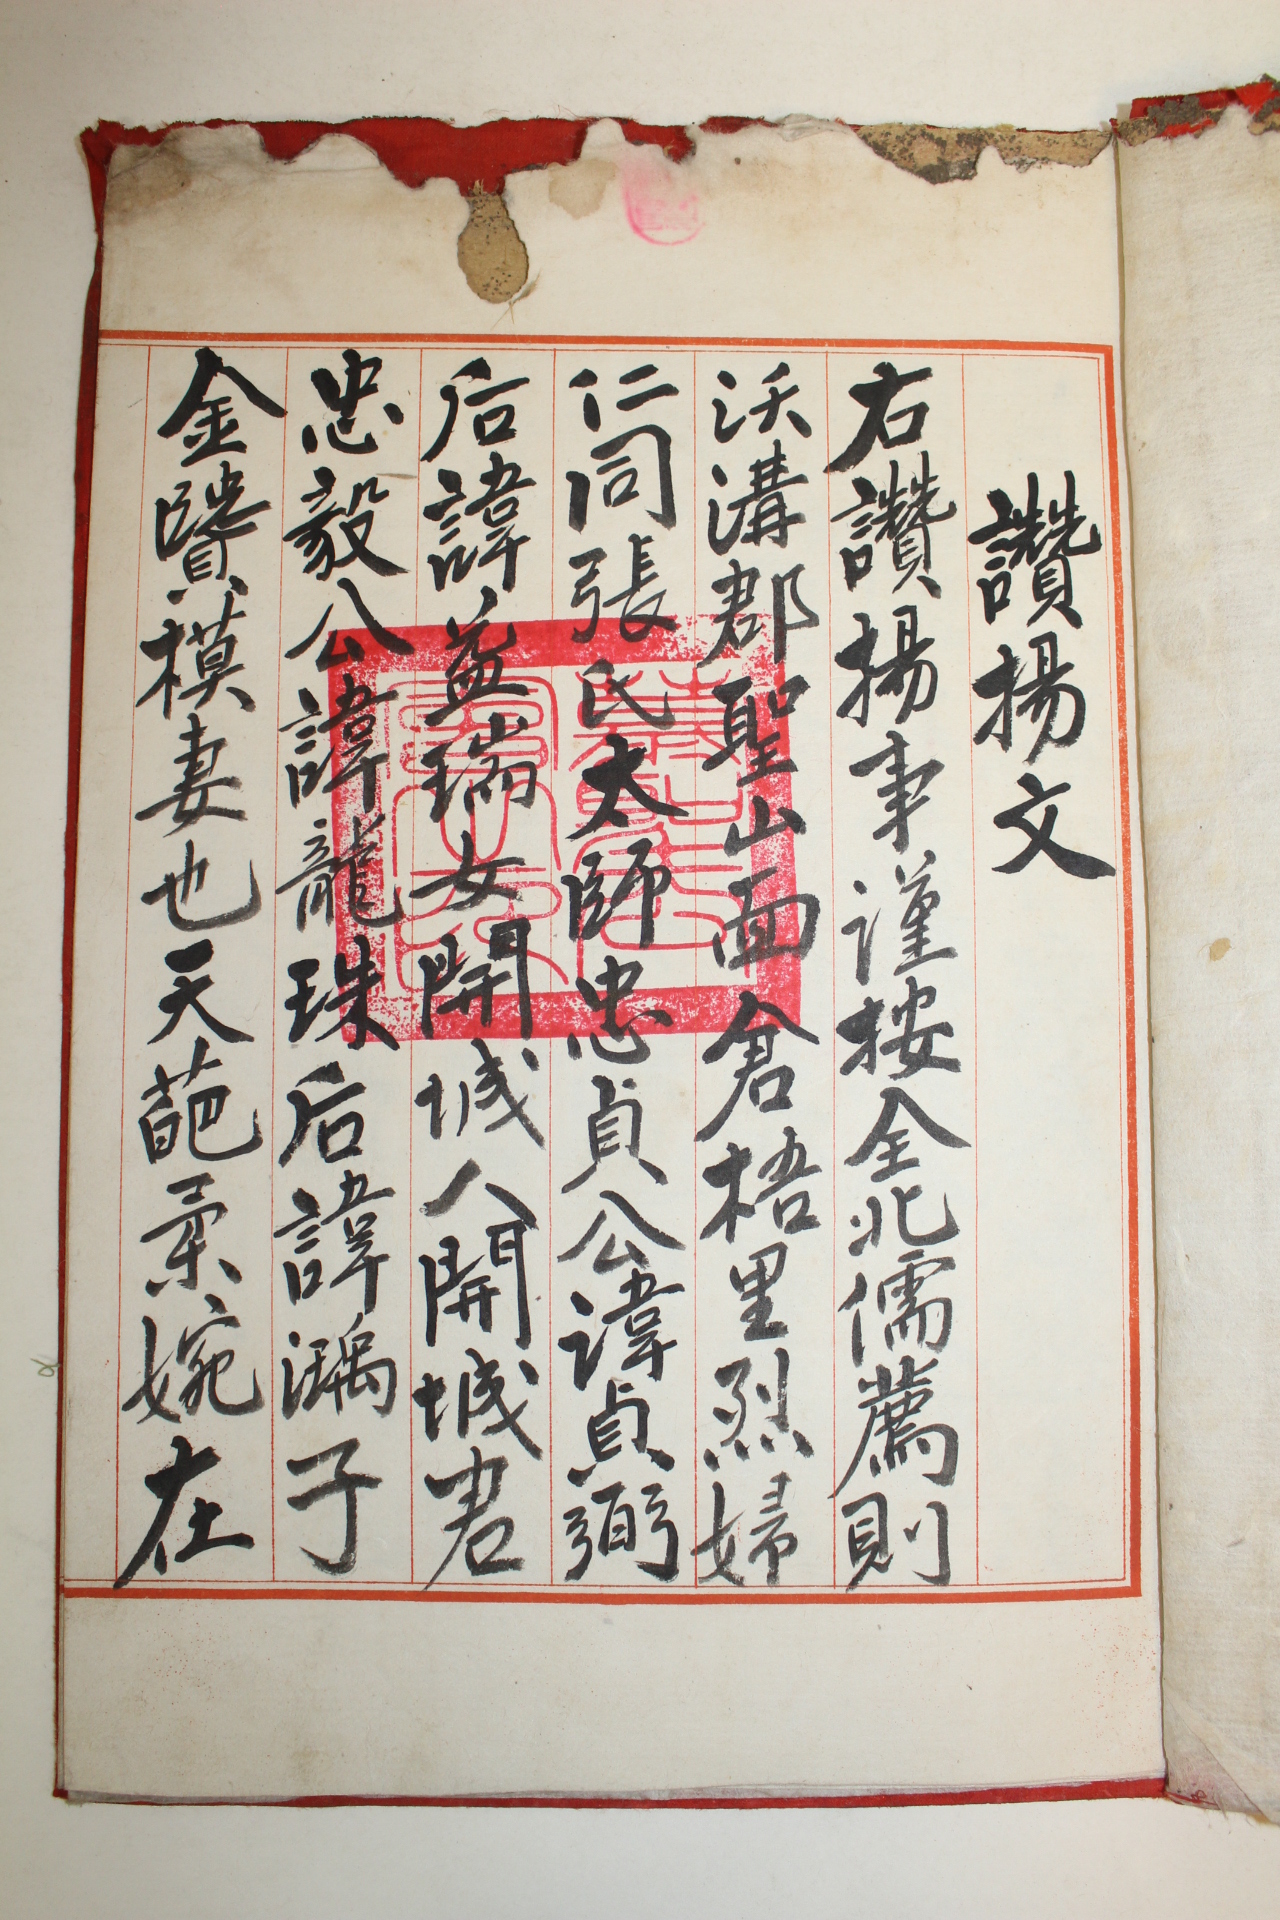 讚揚文
右讚揚事謹按全北儒薦則
沃溝郡聖山面倉梧里烈婦
仁同張氏太師忠貞公諱貞弼
后諱益瑞女開城人開城君
忠毅公諱龍珠后諱漹子
金贒模妻也天葩柔婉在